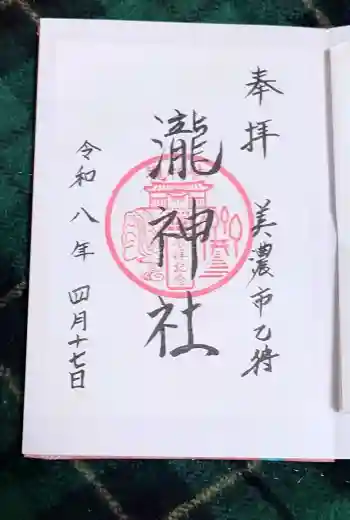 奉拝
美濃市乙狩
瀧神社
参拝記念
令和八年
四月十七日